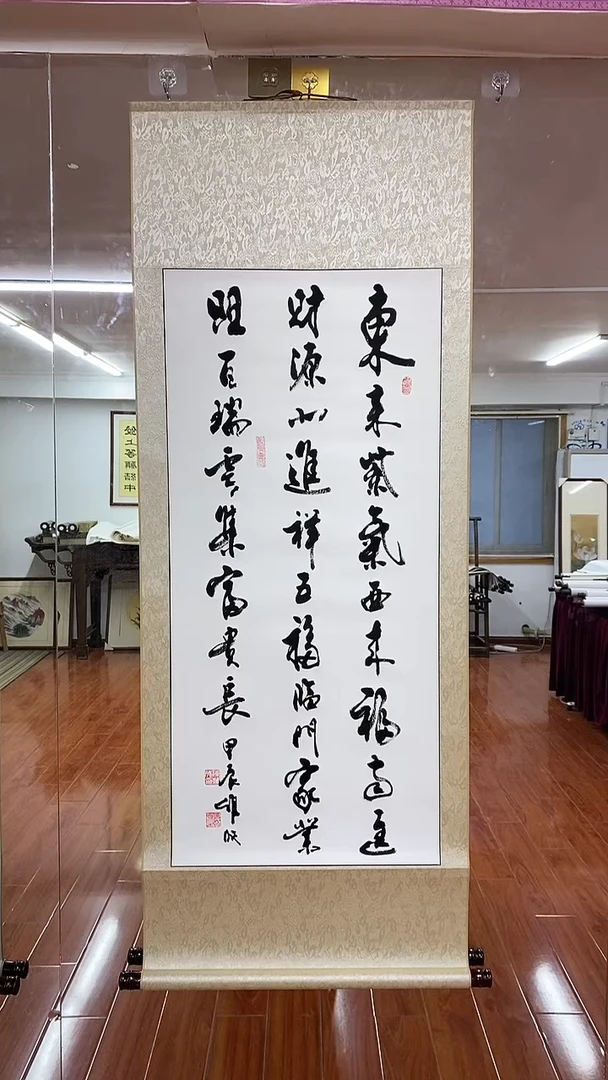 東来紫氣西来福南進
財源北進祥五福臨門家業
旺百瑞雲集富貴長
甲辰雄